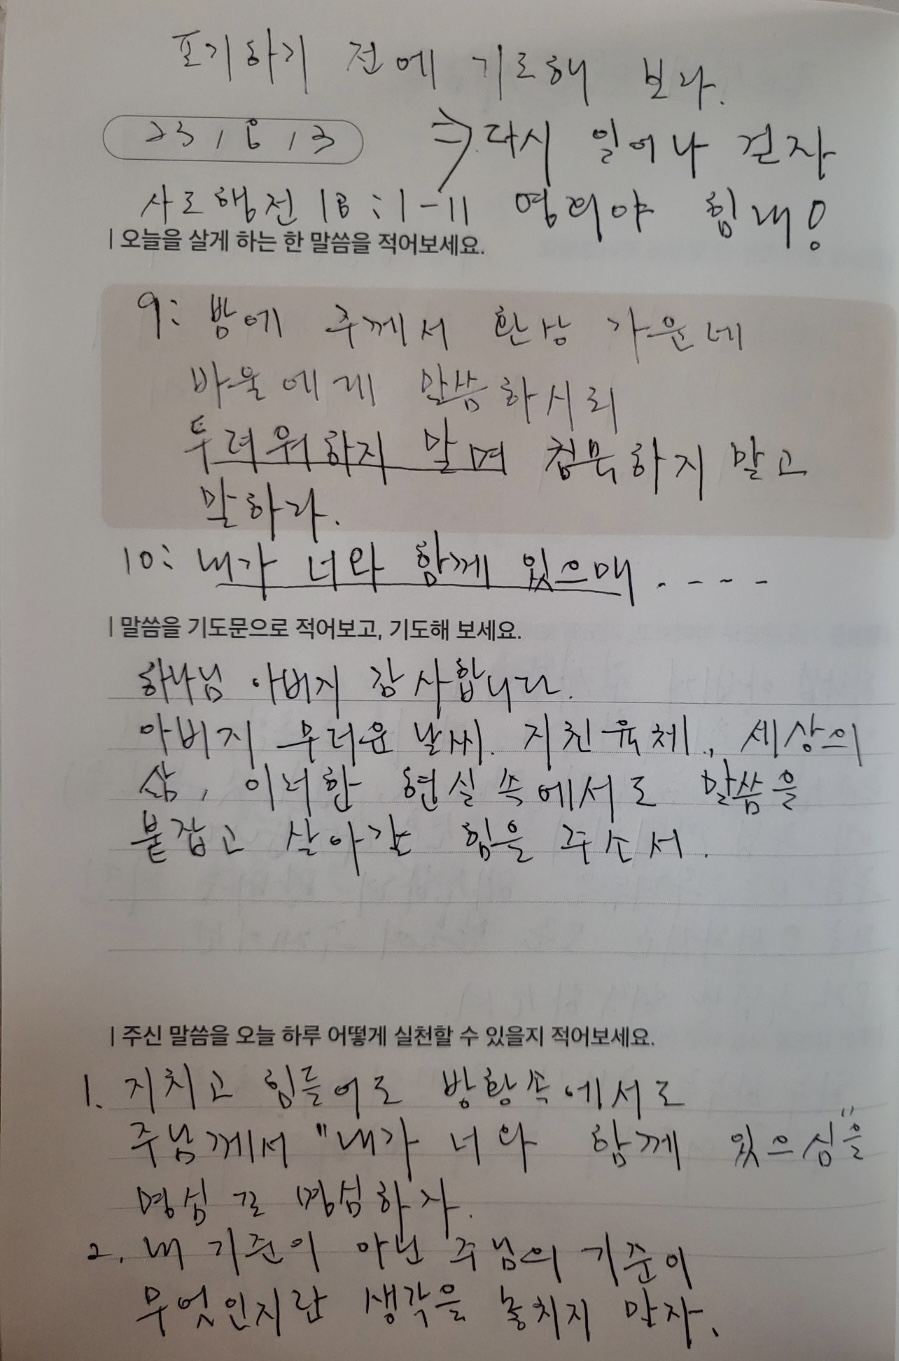 포기하기 전에 기도해 보라.
23, 6, 3 ⇒ 다시 일어나 걷자
사도행전 18:1-11 명희야 힘내!
| 오늘을 살게 하는 한 말씀을 적어보세요.
9: 밤에 주께서 환상 가운데
바울에게 말씀하시되
두려워하지 말며 침묵하지 말고
말하라.
10: 내가 너와 함께 있으매 . - - -
| 말씀을 기도문으로 적어보고, 기도해 보세요.
하나님 아버지 감사합니다.
아버지 무더운 날씨. 지친 육체., 세상의
삶, 이러한 현실 속에서도 말씀을
붙잡고 살아갈 힘을 주소서.
| 주신 말씀을 오늘 하루 어떻게 실천할 수 있을지 적어보세요.
1. 지치고 힘들어도 방황속에서도
주님께서 "내가 너와 함께 있으심"을
명심 또 명심하자.
2. 내 기준이 아닌 주님의 기준이
무엇인지란 생각을 놓치지 말자.